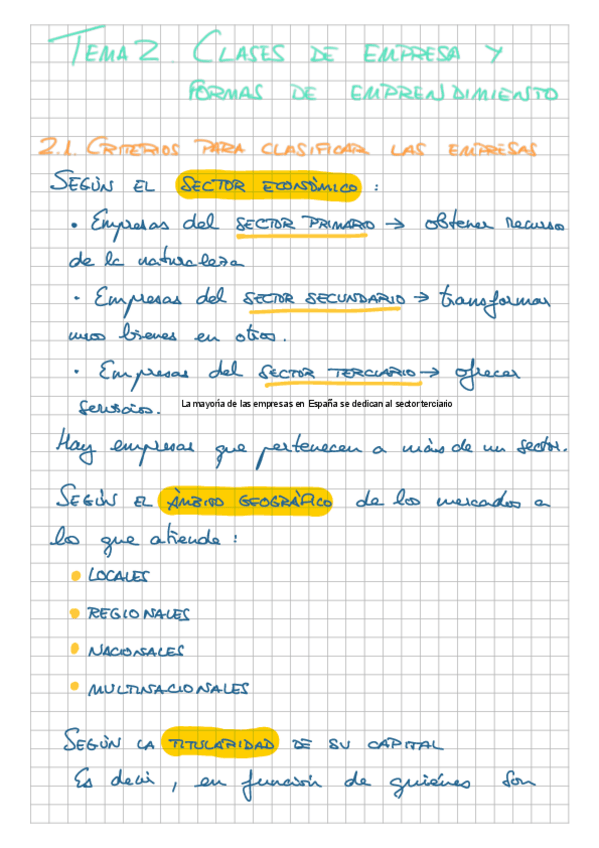 TEMA 2. CLASES DE EMPRESA Y
FORMAS DE EMPRENDIMIENTO
2.1. CRITERIOS PARA CLASIFICAR LAS EMPRESAS
SEGÚN EL SECTOR ECONÓMICO :
• Empresas del SECTOR PRIMARIO → obtener recursos
de la naturaleza
• Empresas del SECTOR SECUNDARIO → transformar
unos bienes en otros.
• Empresas del SECTOR TERCIARIO → ofrecer
servicios. La mayoría de las empresas en España se dedican al sector terciario
Hay empresas que pertenecen a más de un sector.
SEGÚN EL ÁMBITO GEOGRÁFICO de los mercados a
los que atiende :
• LOCALES
• REGIONALES
• NACIONALES
• MULTINACIONALES
SEGÚN LA TITULARIDAD DE SU CAPITAL
Es decir, en función de quiénes son